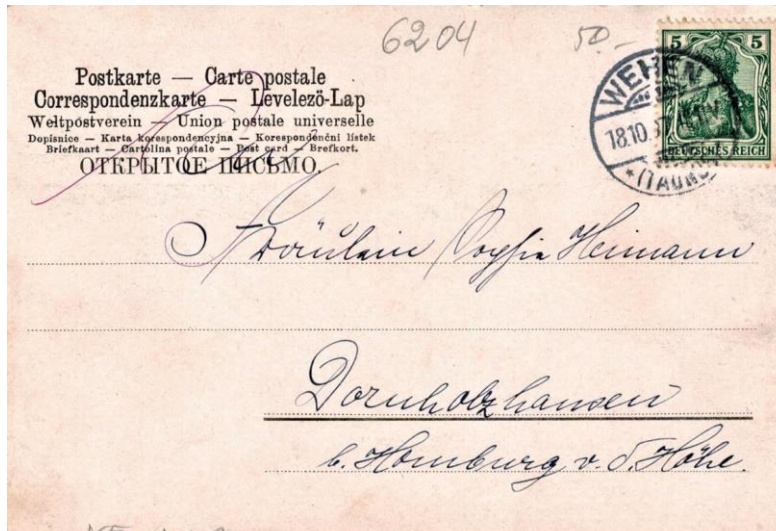 6204 50.-
Postkarte — Carte postale
Correspondenzkarte — Levelezö-Lap
Weltpostverein — Union postale universelle
Dopisnice — Karta korespondencyjna — Korespondenční lístek
Briefkaart — Cartolina postale — Post card — Brefkort.
ОТКРЫТОЕ ПИСЬМО.
5 5
DEUTSCHES REICH
WEHEN
18.10
(TAUNUS)
Fräulein Sophie Heimann
Dornholzhausen
b. Homburg v. d. Höhe.